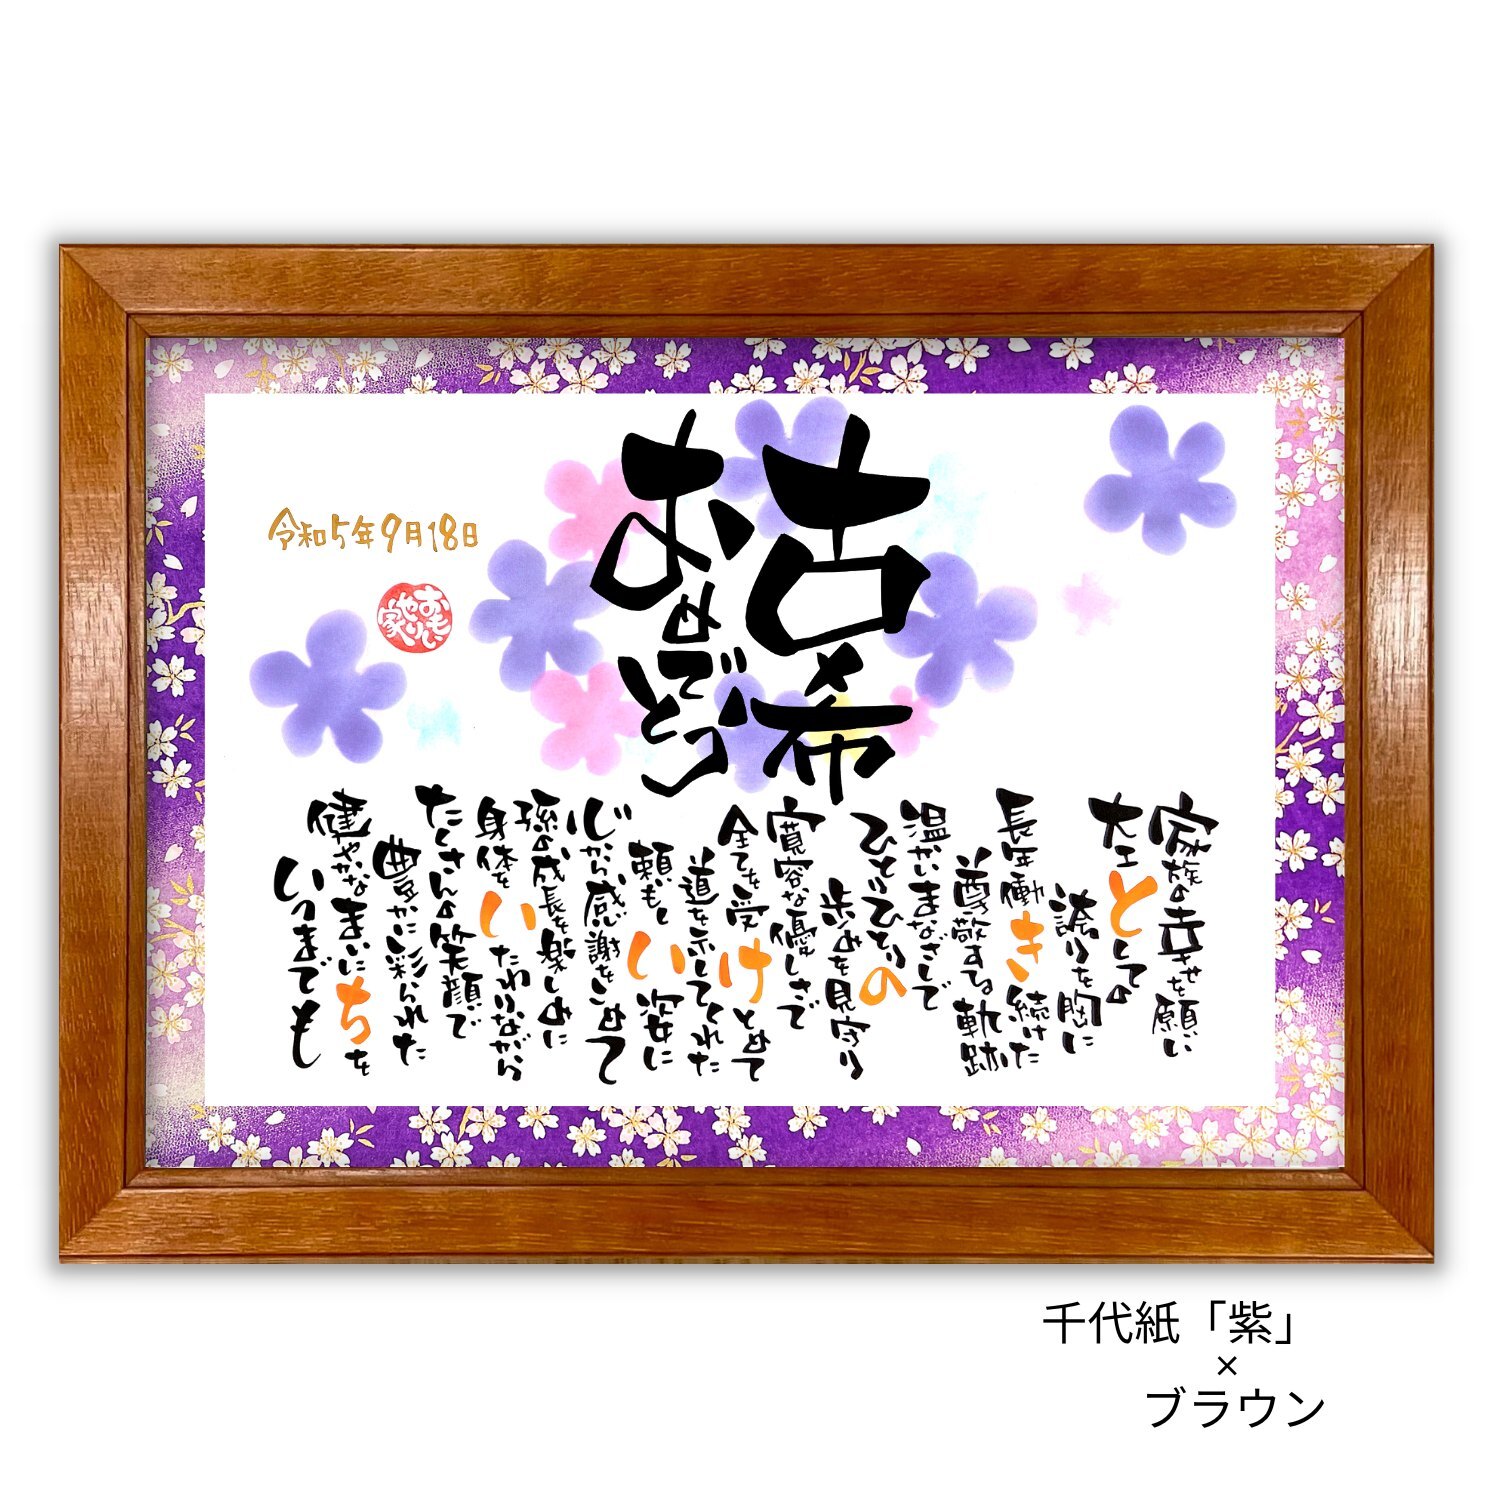 古希
おめでとう
令和5年9月18日
おもいやり家
家族の幸せを願い
大工としての
誇りを胸に
長年働き続けた
尊敬する軌跡
温かいまなざしで
ひとりひとりの
歩みを見守り
寛容な優しさで
全てを受けとめて
道を示してくれた
頼もしい姿に
心から感謝をこめて
孫の成長を楽しみに
身体をいたわりながら
たくさんの笑顔で
豊かに彩られた
健やかなまいにちを
いつまでも
千代紙「紫」
×
ブラウン